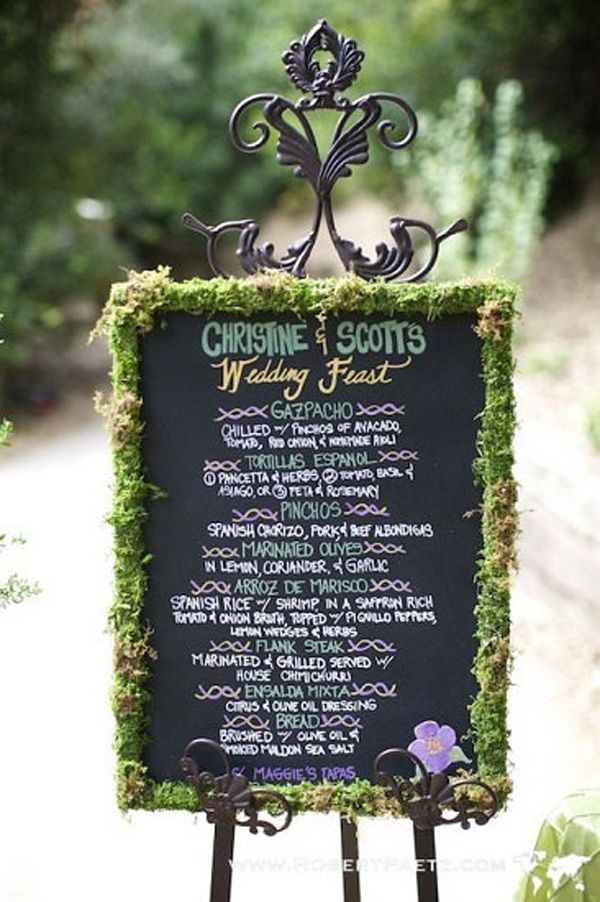 CHRISTINE & SCOTT'S
Wedding Feast
GAZPACHO
CHILLED W/ PINCHOS OF AVACADO,
TOMATO, RED ONION, & HOMEMADE AIOLI
TORTILLAS ESPANOL
① PANCETTA & HERBS, ② TOMATO, BASIL &
ASIAGO, OR ③ FETA & ROSEMARY
PINCHOS
SPANISH CHORIZO, PORK, & BEEF ALBONDIGAS
MARINATED OLIVES
IN LEMON, CORIANDER, & GARLIC
ARROZ DE MARISCO
SPANISH RICE W/ SHRIMP IN A SAFFRON RICH
TOMATO & ONION BROTH, TOPPED W/ PIQUILLO PEPPERS,
LEMON WEDGES & HERBS
FLANK STEAK
MARINATED & GRILLED, SERVED W/
HOUSE CHMICHURRI
ENSALDA MIXTA
CITRUS & OLIVE OIL DRESSING
BREAD
BRUSHED W/ OLIVE OIL &
SMOKED MALDON SEA SALT
MAGGIE'S TAPAS
WWW.ROBERTPAETZ.COM